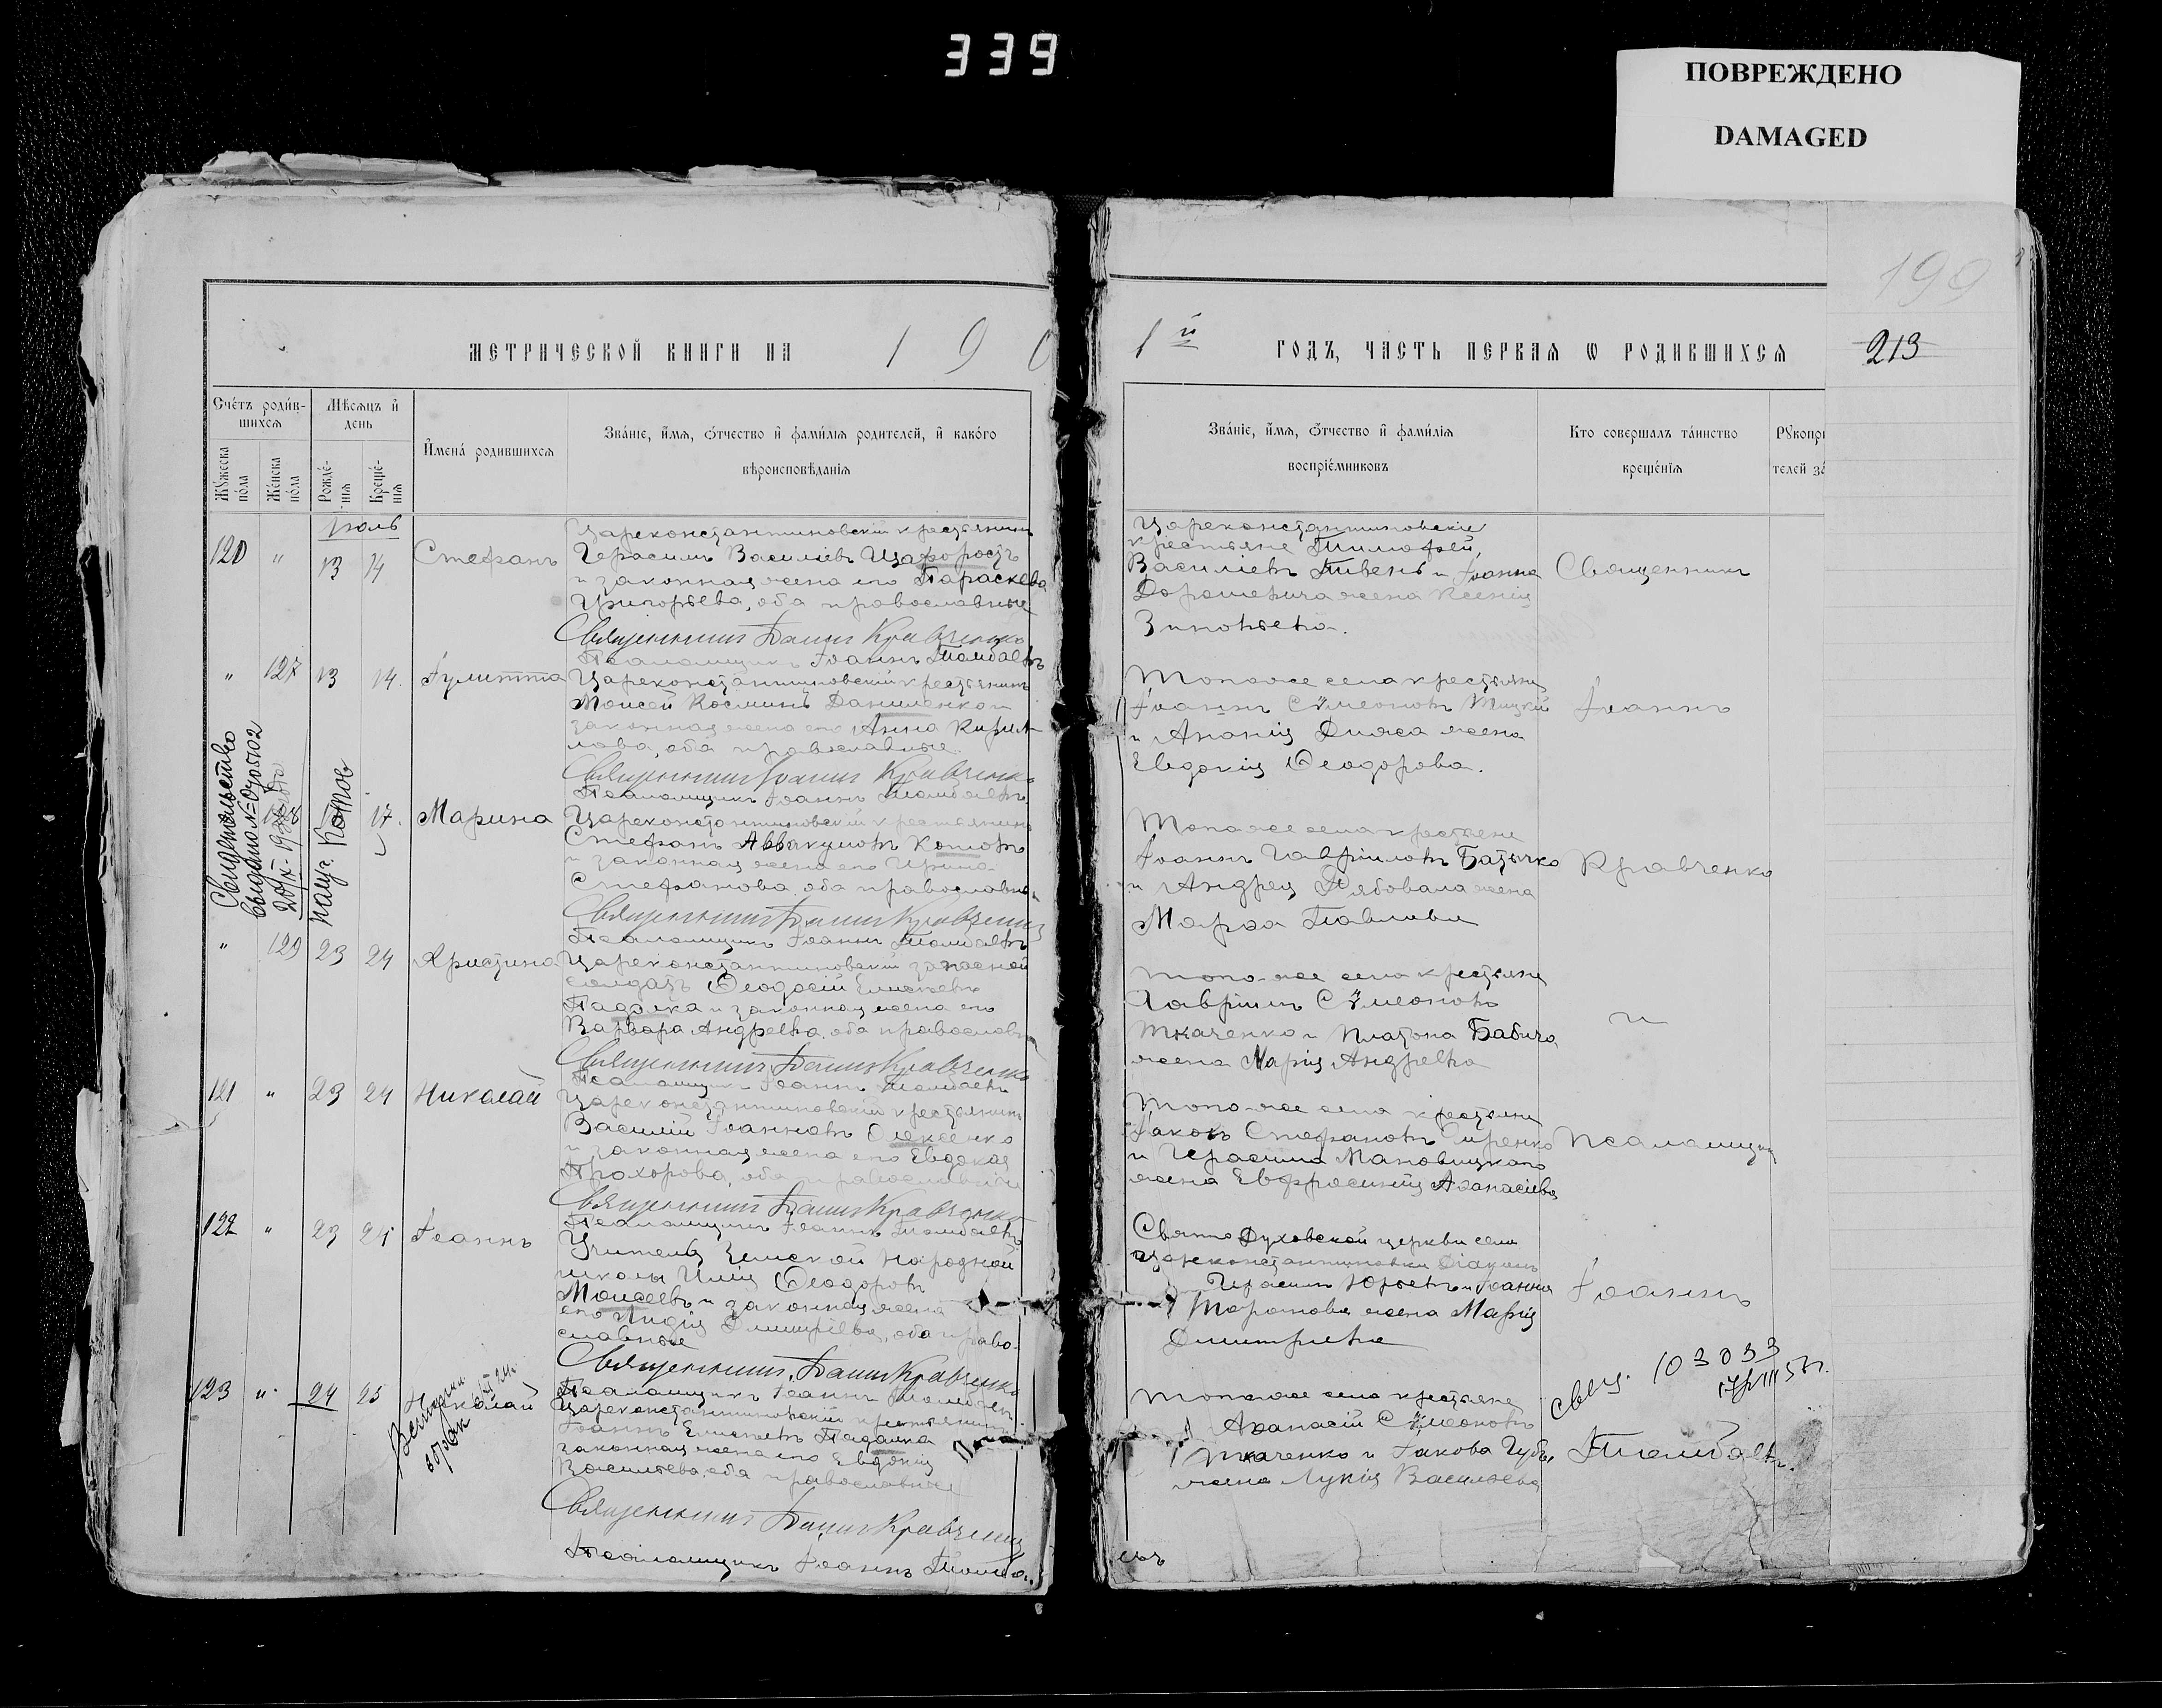 339
ПОВРЕЖДЕНО
DAMAGED
199
213
МЕТРИЧЕСКОЙ КНИГИ НА 190
1й ГОДЪ, ЧАСТЬ ПЕРВАЯ Ѡ РОДИВШИХСЯ
Счетъ родив-
шихся
Мѣсяцъ и
день
Мужеска
пола
Женска
пола
Рожде-
нія
Креще-
нія
Имена родившихся
Званіе, имя, отчество и фамилія родителей, и какого
вѣроисповѣданія
Званіе, имя, отчество и фамилія
воспріемниковъ
Кто совершалъ таинство
крещенія
Рукопри
телей за
Июль
120 " 13 14 Стефанъ
Цареконстантиновскій крестьянинъ
Герасимъ Василіевъ Цафорость
и законная жена его Параскева
Григорьева, оба православные
Священникъ Іоаннъ Кравченко
Псаломщикъ Іоаннъ
Цареконстантиновскіе
крестьяне Тимофей
Василіевъ Пивень и Іоанна
жена Ксенія
Зиновьева.
Священникъ
" 127 13 14. Іулитта
Цареконстантиновскій крестьянинъ
Моисей Косминъ Даниленко и
законная жена его Анна Кирил
лова, оба православные.
Священникъ Іоаннъ Кравченко
Псаломщикъ Іоаннъ
Того же села крестьяне
Іоаннъ Сѵмеоновъ
и Ананія жена
Евдокія Ѳеодорова.
Іоаннъ
Свидетельство
выдано №
Котов
17. Марина
Цареконстантиновскій крестьянинъ
Стефанъ Аввакумовъ Котовъ
и законная жена его Ирина
Стефанова, оба православны
Священникъ Іоаннъ Кравченко
Псаломщикъ Іоаннъ
Того же села крестьяне
Іоаннъ Гавріиловъ
и Андрея жена
Марѳа Павлова
Кравченко
" 129 23 24 Христина
Цареконстантиновскій запасной
солдатъ Ѳеодосій
Падолка и законная жена его
Варвара Андреева, оба православ
Священникъ Іоаннъ Кравченко
Псаломщикъ Іоаннъ
Того же села крестьяне
Гавріилъ Сѵмеоновъ
Ткаченко и Платона Бабича
жена Марія Андреева
и
121 " 23 24 Николай
Цареконстантиновскій крестьянинъ
Василій Іоанновъ Олексенко
и законная жена его Евдокія
Прохорова, оба православные
Священникъ Іоаннъ Кравченко
Псаломщикъ Іоаннъ
Того же села крестьяне
Іаковъ Стефановъ
и Герасима
жена Евфросинія Аѳанасіева
Псаломщик
122 " 23 24 Іоаннъ
Учитель Земской Народной
школы Илія Ѳеодоровъ
Моисеевъ и законная жена
его Лидія Димитріева, оба право-
славные
Священникъ Іоаннъ Кравченко
Псаломщикъ Іоаннъ
Свято Духовской церкви села
Цареконстантиновки діаконъ
Герасимъ Юрьевъ и Іоанна
жена Марія
Димитріева
Іоаннъ
123 " 24 25 Николай
Цареконстантиновскій крестьянинъ
Іоаннъ Падалка
законная жена его Евдокія
Васильева, оба православные
Священникъ Іоаннъ Кравченко
Псаломщикъ Іоаннъ
Того же села крестьяне
Аѳанасій Сѵмеоновъ
Ткаченко и Іакова
жена Лукія Васильева
103033